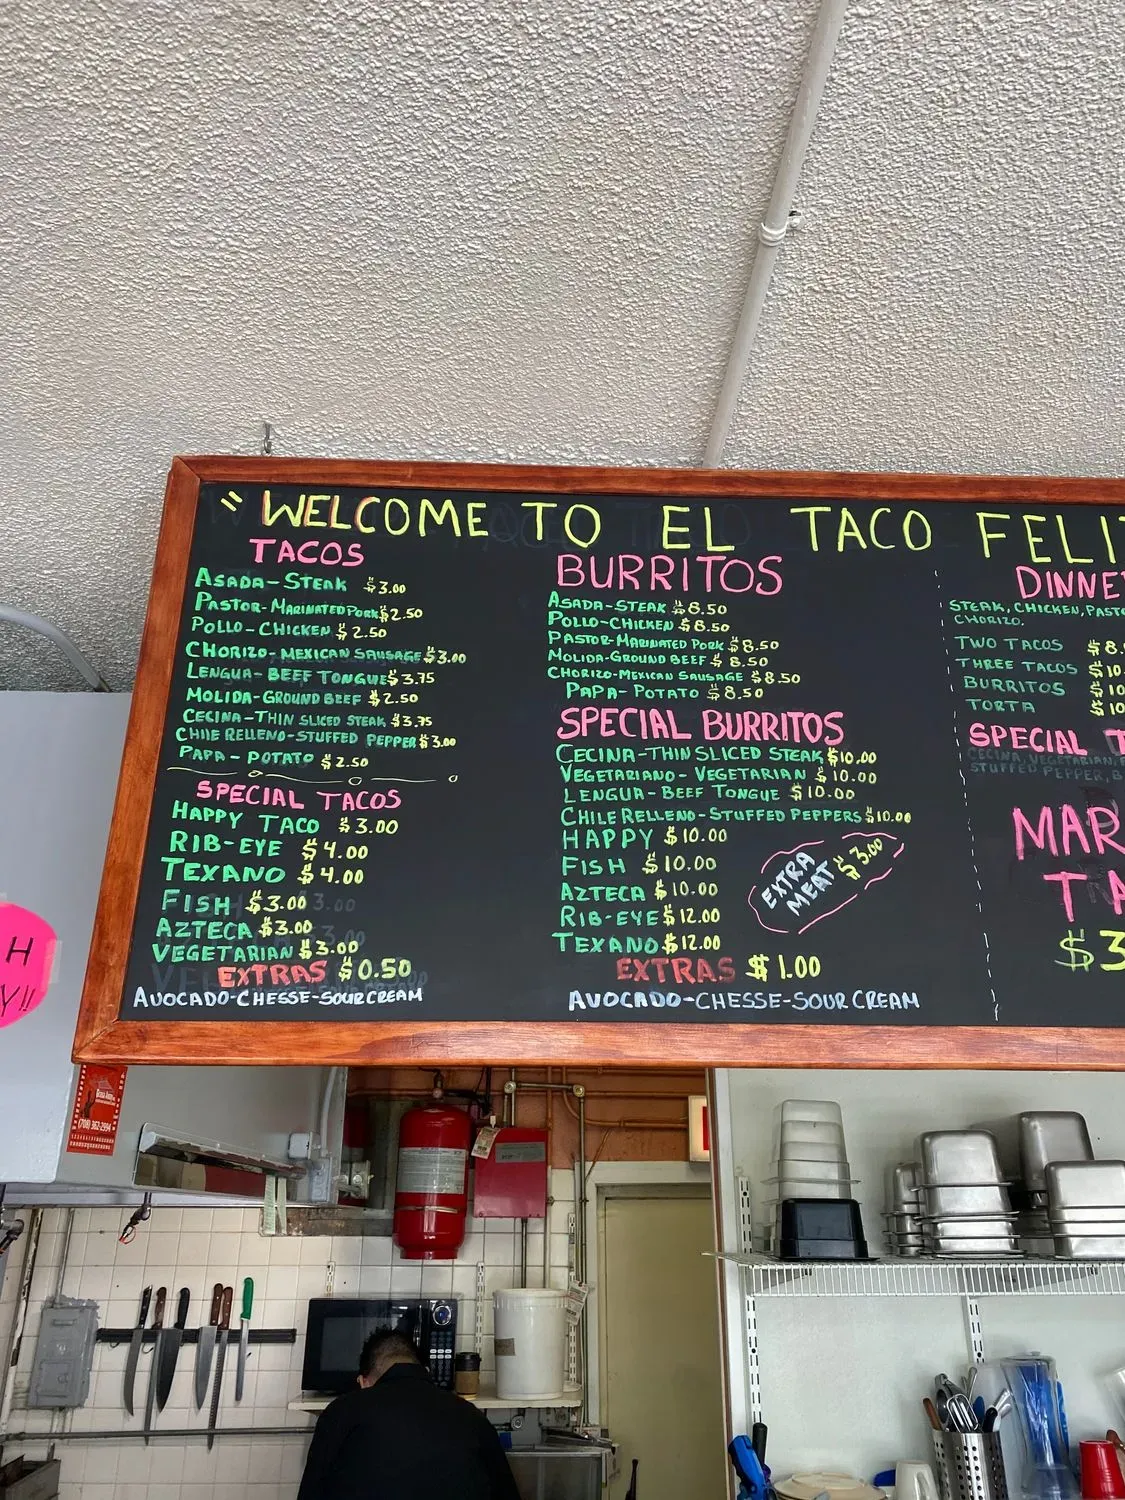 "WELCOME TO EL TACO FELI
TACOS
ASADA-STEAK $3.00
PASTOR-MARINATED PORK $2.50
POLLO-CHICKEN $2.50
CHORIZO-MEXICAN SAUSAGE $3.00
LENGUA-BEEF TONGUE $3.75
MOLIDA-GROUND BEEF $2.50
CECINA-THIN SLICED STEAK $3.75
CHILE RELLENO-STUFFED PEPPER $3.00
PAPA-POTATO $2.50
SPECIAL TACOS
HAPPY TACO $3.00
RIB-EYE $4.00
TEXANO $4.00
FISH $3.00
AZTECA $3.00
VEGETARIAN $3.00
EXTRAS $0.50
AVOCADO-CHESSE-SOUR CREAM
BURRITOS
ASADA-STEAK $8.50
POLLO-CHICKEN $8.50
PASTOR-MARINATED PORK $8.50
MOLIDA-GROUND BEEF $8.50
CHORIZO-MEXICAN SAUSAGE $8.50
PAPA-POTATO $8.50
SPECIAL BURRITOS
CECINA-THIN SLICED STEAK $10.00
VEGETARIANO-VEGETARIAN $10.00
LENGUA-BEEF TONGUE $10.00
CHILE RELLENO-STUFFED PEPPERS $10.00
HAPPY $10.00
FISH $10.00
AZTECA $10.00
RIB-EYE $12.00
TEXANO $12.00
EXTRA MEAT $3.00
EXTRAS $1.00
AVOCADO-CHESSE-SOUR CREAM
DINNE
STEAK, CHICKEN, PASTO
CHORIZO.
TWO TACOS $8.
THREE TACOS $10
BURRITOS $10
TORTA $10
SPECIAL T
CECINA, VEGETARIAN,
STUFFED PEPPER, B
MAR
TA
$3
H
Y!!
(708) 362-2994